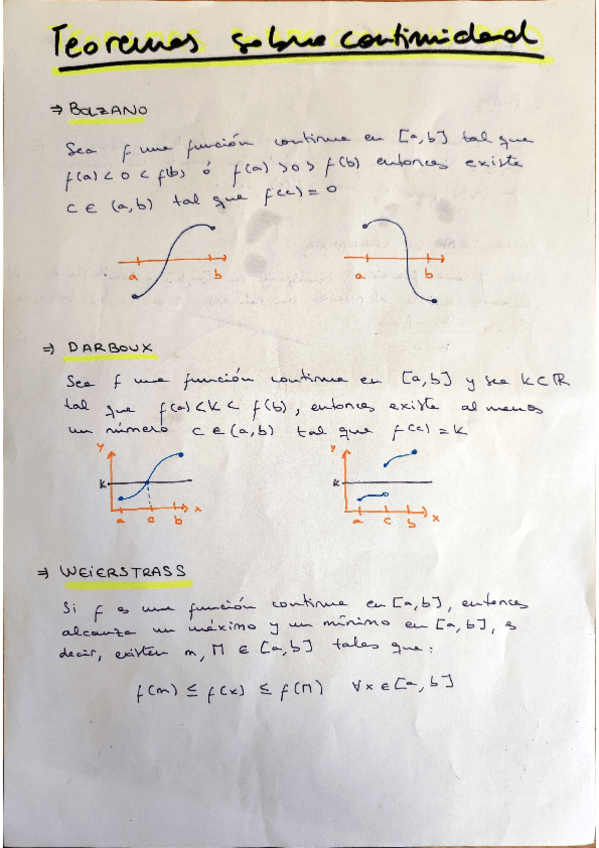 Teoremas sobre continuidad
⇒ BOLZANO
Sea f una función continua en [a,b] tal que
f(a) < 0 < f(b) ó f(a) > 0 > f(b) entonces existe
c ∈ (a,b) tal que f(c) = 0
a b
a b
⇒ DARBOUX
Sea f una función continua en [a,b] y sea k⊂ℝ
tal que f(a) < k < f(b), entonces existe al menos
un número c ∈ (a,b) tal que f(c) = k
y
k
a c b x
y
k
a c b x
⇒ WEIERSTRASS
Si f es una función continua en [a,b], entonces
alcanza un máximo y un mínimo en [a,b], es
decir, existen m, M ∈ [a,b] tales que:
f(m) ≤ f(x) ≤ f(M) ∀x ∈ [a,b]